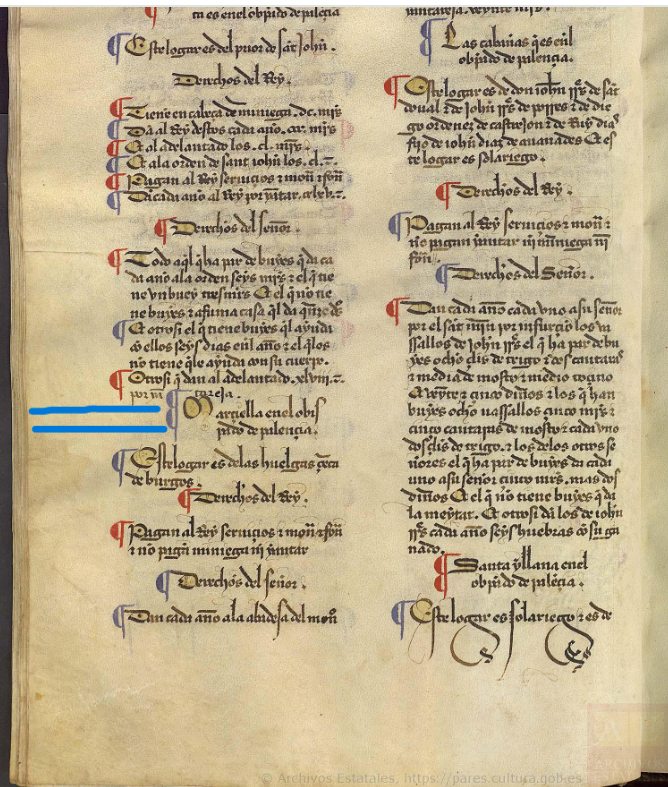 ta es enel obpado de palençia
Este logar es del prior de sāt Johīn.
Derechos del Rey.
Tiene en cabeça de miniega. dc. mrs
Dā al Rey destos cada año. cxv. mrs
Et al adelantado los. cl. mrs.
Et ala orden de sant iohīn los. cl. τ.
Pagan al Rey seruiçios τ mon τ fon
Dā cada año al Rey por yātar.
Derechos del señor.
Todo aql q ha par de bueyes q da ca
da año ala orden seys mrs τ el q tie
ne vn buey tres mrs Et el q no tie
ne bueyes τ afuma casa ql da
Et otrosi el q tiene bueyes ql ayuda
cō ellos seys dias enl año τ el qlos
no tiene qle ayuda con su cuerpo.
Otrosi q dan al adelantado. xlviii. τ.
por
Marziella enel obis
pado de palençia.
Este logar es delas huelgas çerca
de burgos.
Derechos del Rey.
Pagan al Rey seruiçios τ mon τ fon
τ no pagan miniega ni yantar
Derechos del señor.
Dan cada año ala abadesa del mon
Las cabañas q es enl
obpado de palençia.
Este logar es de don iohn
doual τ de iohn rrs de porres τ de die
go ordonez de castrejon τ de Ruy dia
fijo de iohn diaz de Et es
te logar es solariego.
Derechos del Rey.
Pagan al Rey seruiçios τ mon τ
no pagan yantar ni miniega ni
fon
Derechos del Señor.
Dan cada año cada vno a su señor
por el sāt mīn por infurçio los va
ssallos de iohn rrs el q ha par de bu
yes ocho çlis de trigo τ dos cantaras
τ media de mosto τ medio toçino
Et veynte τ çinco dineros τ los q han
bueyes ocho vassallos çinco mrs τ
çinco cantaras de mosto τ cada vno
dos çlis de trigo. τ los delos otros se
ñores el q ha par de bueyes da cada
uno a su señor çinco mrs. mas dos
dineros Et el q no tiene bueyes q da
la meytat. Et otrosi dā los de iohn
rrs cada año seys huebras cō su ga
nado.
Santa yllana enel
obpado de palençia.
Este logar es solariego τ es de
© Archivos Estatales, https://pares.cultura.gob.es